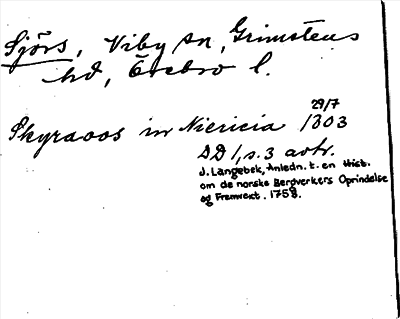 Sjörs, Viby sn, Grimstens
hd, Örebro l.
29/7
Skyraoos in Niericia 1303
DD 1, s. 3 avtr.
J. Langebek, Anledn. t. en Hist.
om de norske Bergverkers Oprindelse
og Fremvext. 1758.